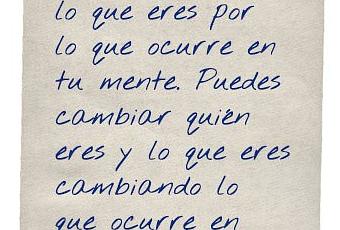 lo que eres por
lo que ocurre en
tu mente. Puedes
cambiar quién
eres y lo que eres
cambiando lo
que ocurre en